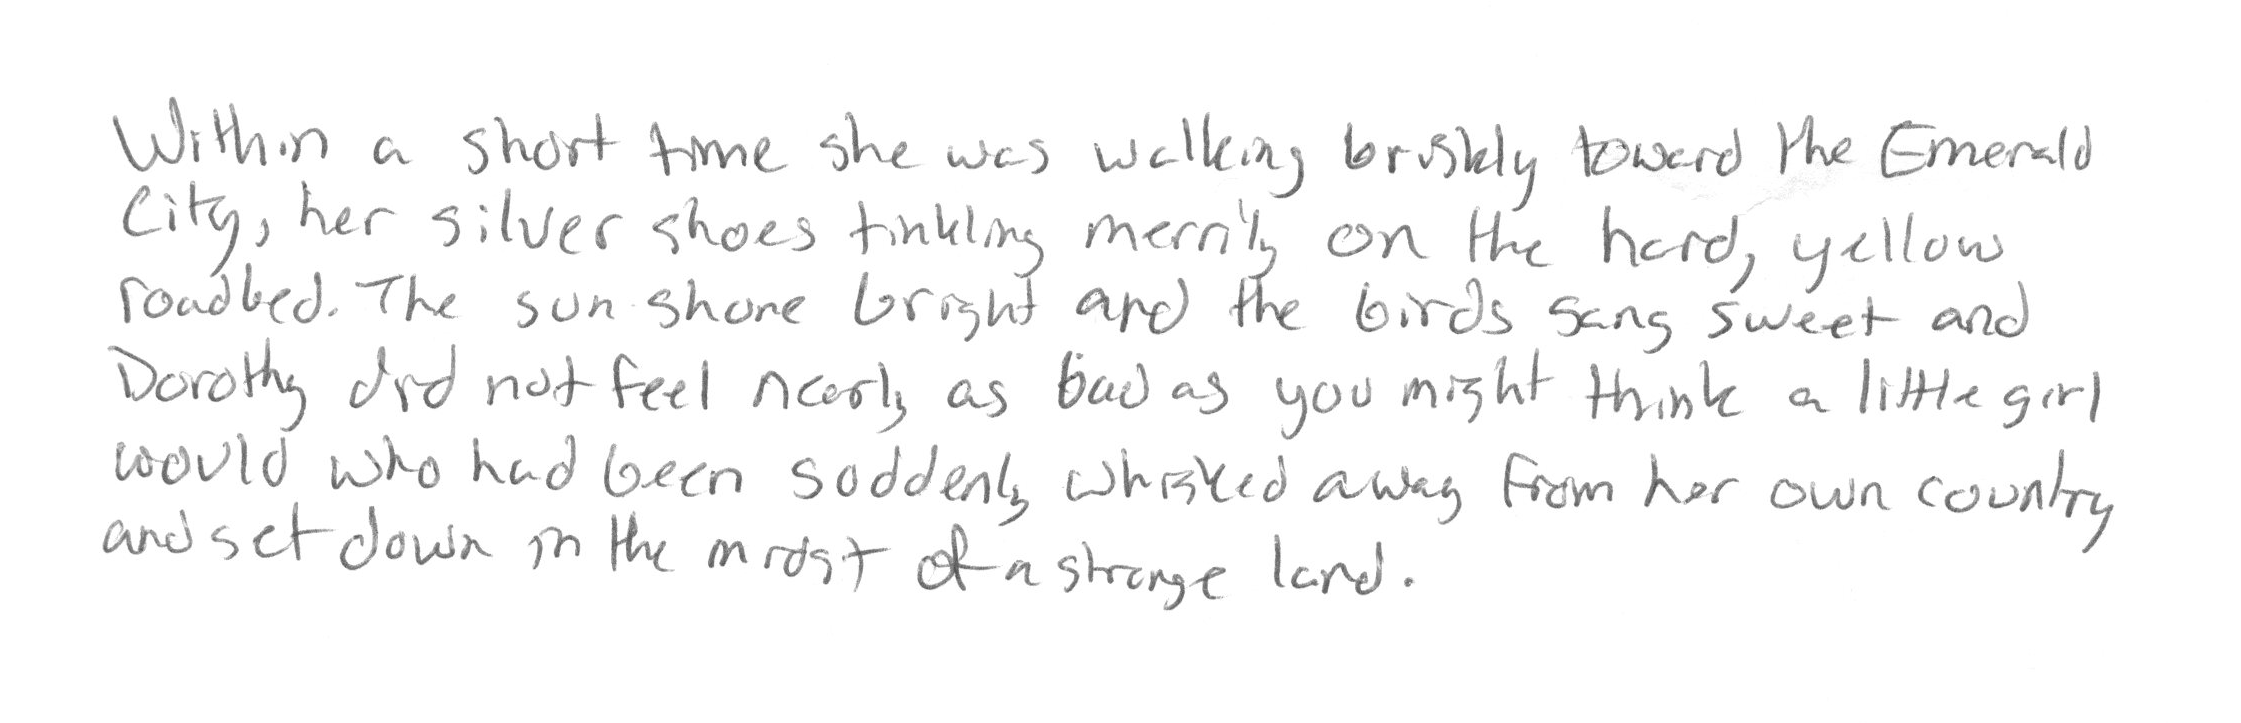 Within a short time she was walking briskly toward the Emerald
City, her silver shoes tinkling merrily on the hard, yellow
roadbed. The sun shone bright and the birds sang sweet and
Dorothy did not feel nearly as bad as you might think a little girl
would who had been suddenly whisked away from her own country
and set down in the midst of a strange land.